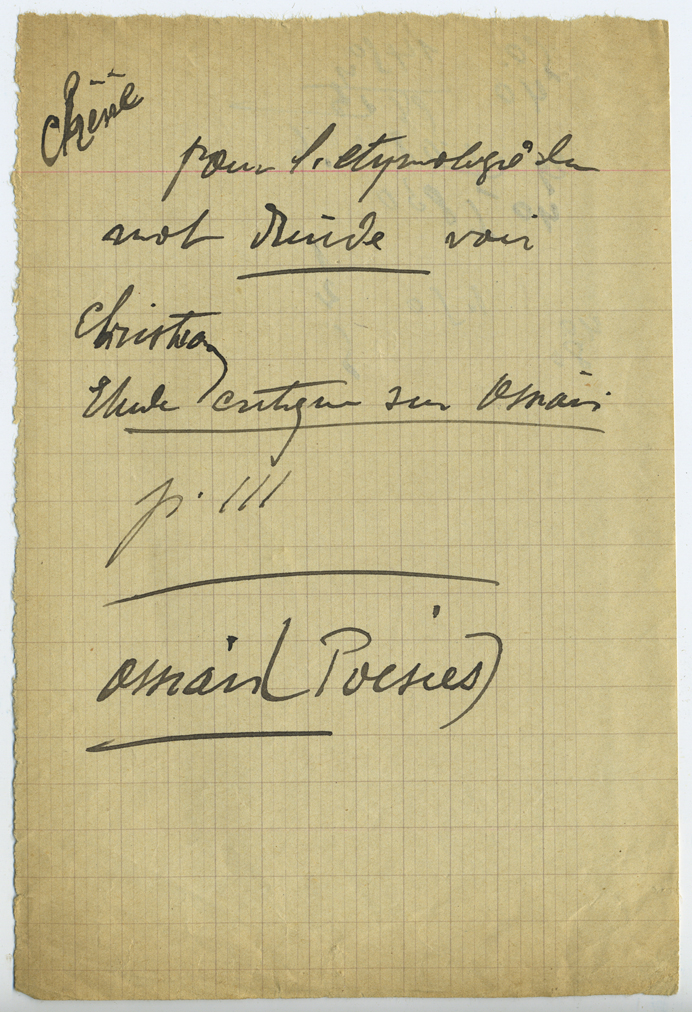 Chêne
pour l'etymologie du
mot druide voir
Christian
Etude critique sur Ossian
p. III
Ossian (Poesies)